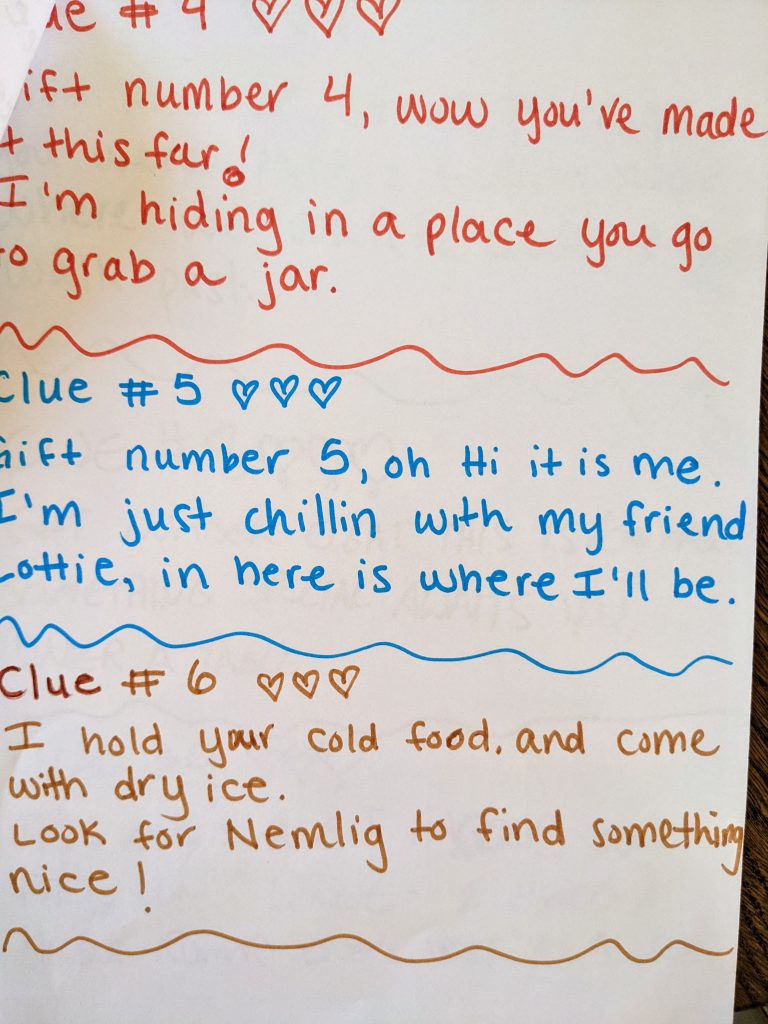 ue # 4
ift number 4, wow you've made
t this far!
I'm hiding in a place you go
to grab a jar.
Clue # 5
Gift number 5, oh Hi it is me.
I'm just chillin with my friend
Lottie, in here is where I'll be.
Clue # 6
I hold your cold food, and come
with dry ice.
Look for Nemlig to find something
nice!